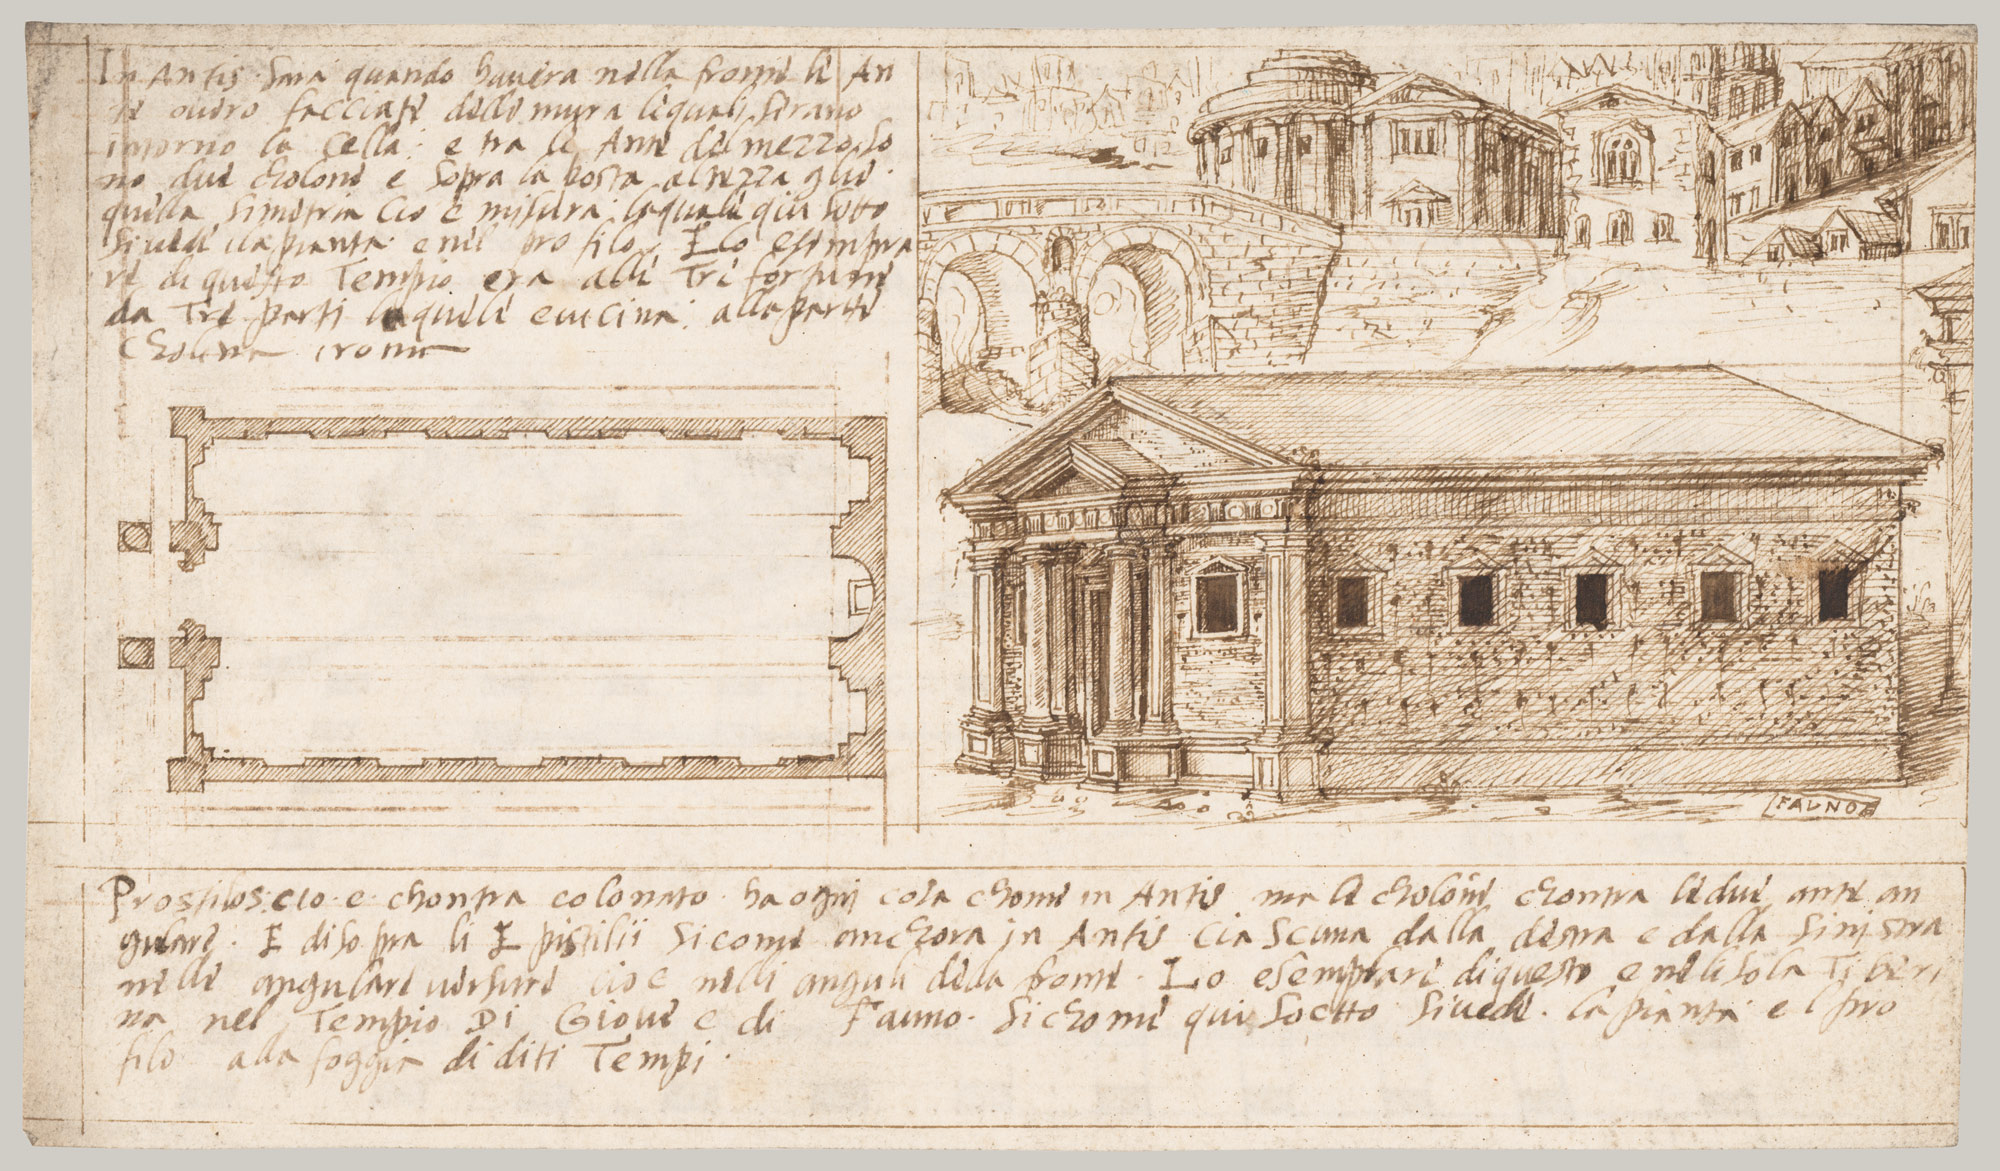 In Antis. sara quando havera nella fronte le An
te overo facciate delle mura lequali serano
intorno la cella; e tra le Ante del mezzo so
no due cholone e sopra la posta altezza glie.
quella simetria cio e misura; laquale qui sotto
si vede ila pianta e nel profilo. E Lo esempra
re di questo Tempio era alli Tre fortune
da Tre parti lequele e vicina; alla parte
cholina
Prostilos: cio. e. chontra colonato. ha ogni cosa chome in Antis ma le cholone chontra le due ante an
gulare. E di sopra li Epistilii sicome anchora in Antis Ciascuna dalla destra e dalla Sinistra
nelle angulare versure cio e nelli anguli della fronte. Lo esemplare di questo e nelisola Tiberi
na nel Tempio Di Giove e di Fauno. sichome qui soctto sivede. la pianta e l pro
filo alla foggia di diti Tempi.
FAUNO